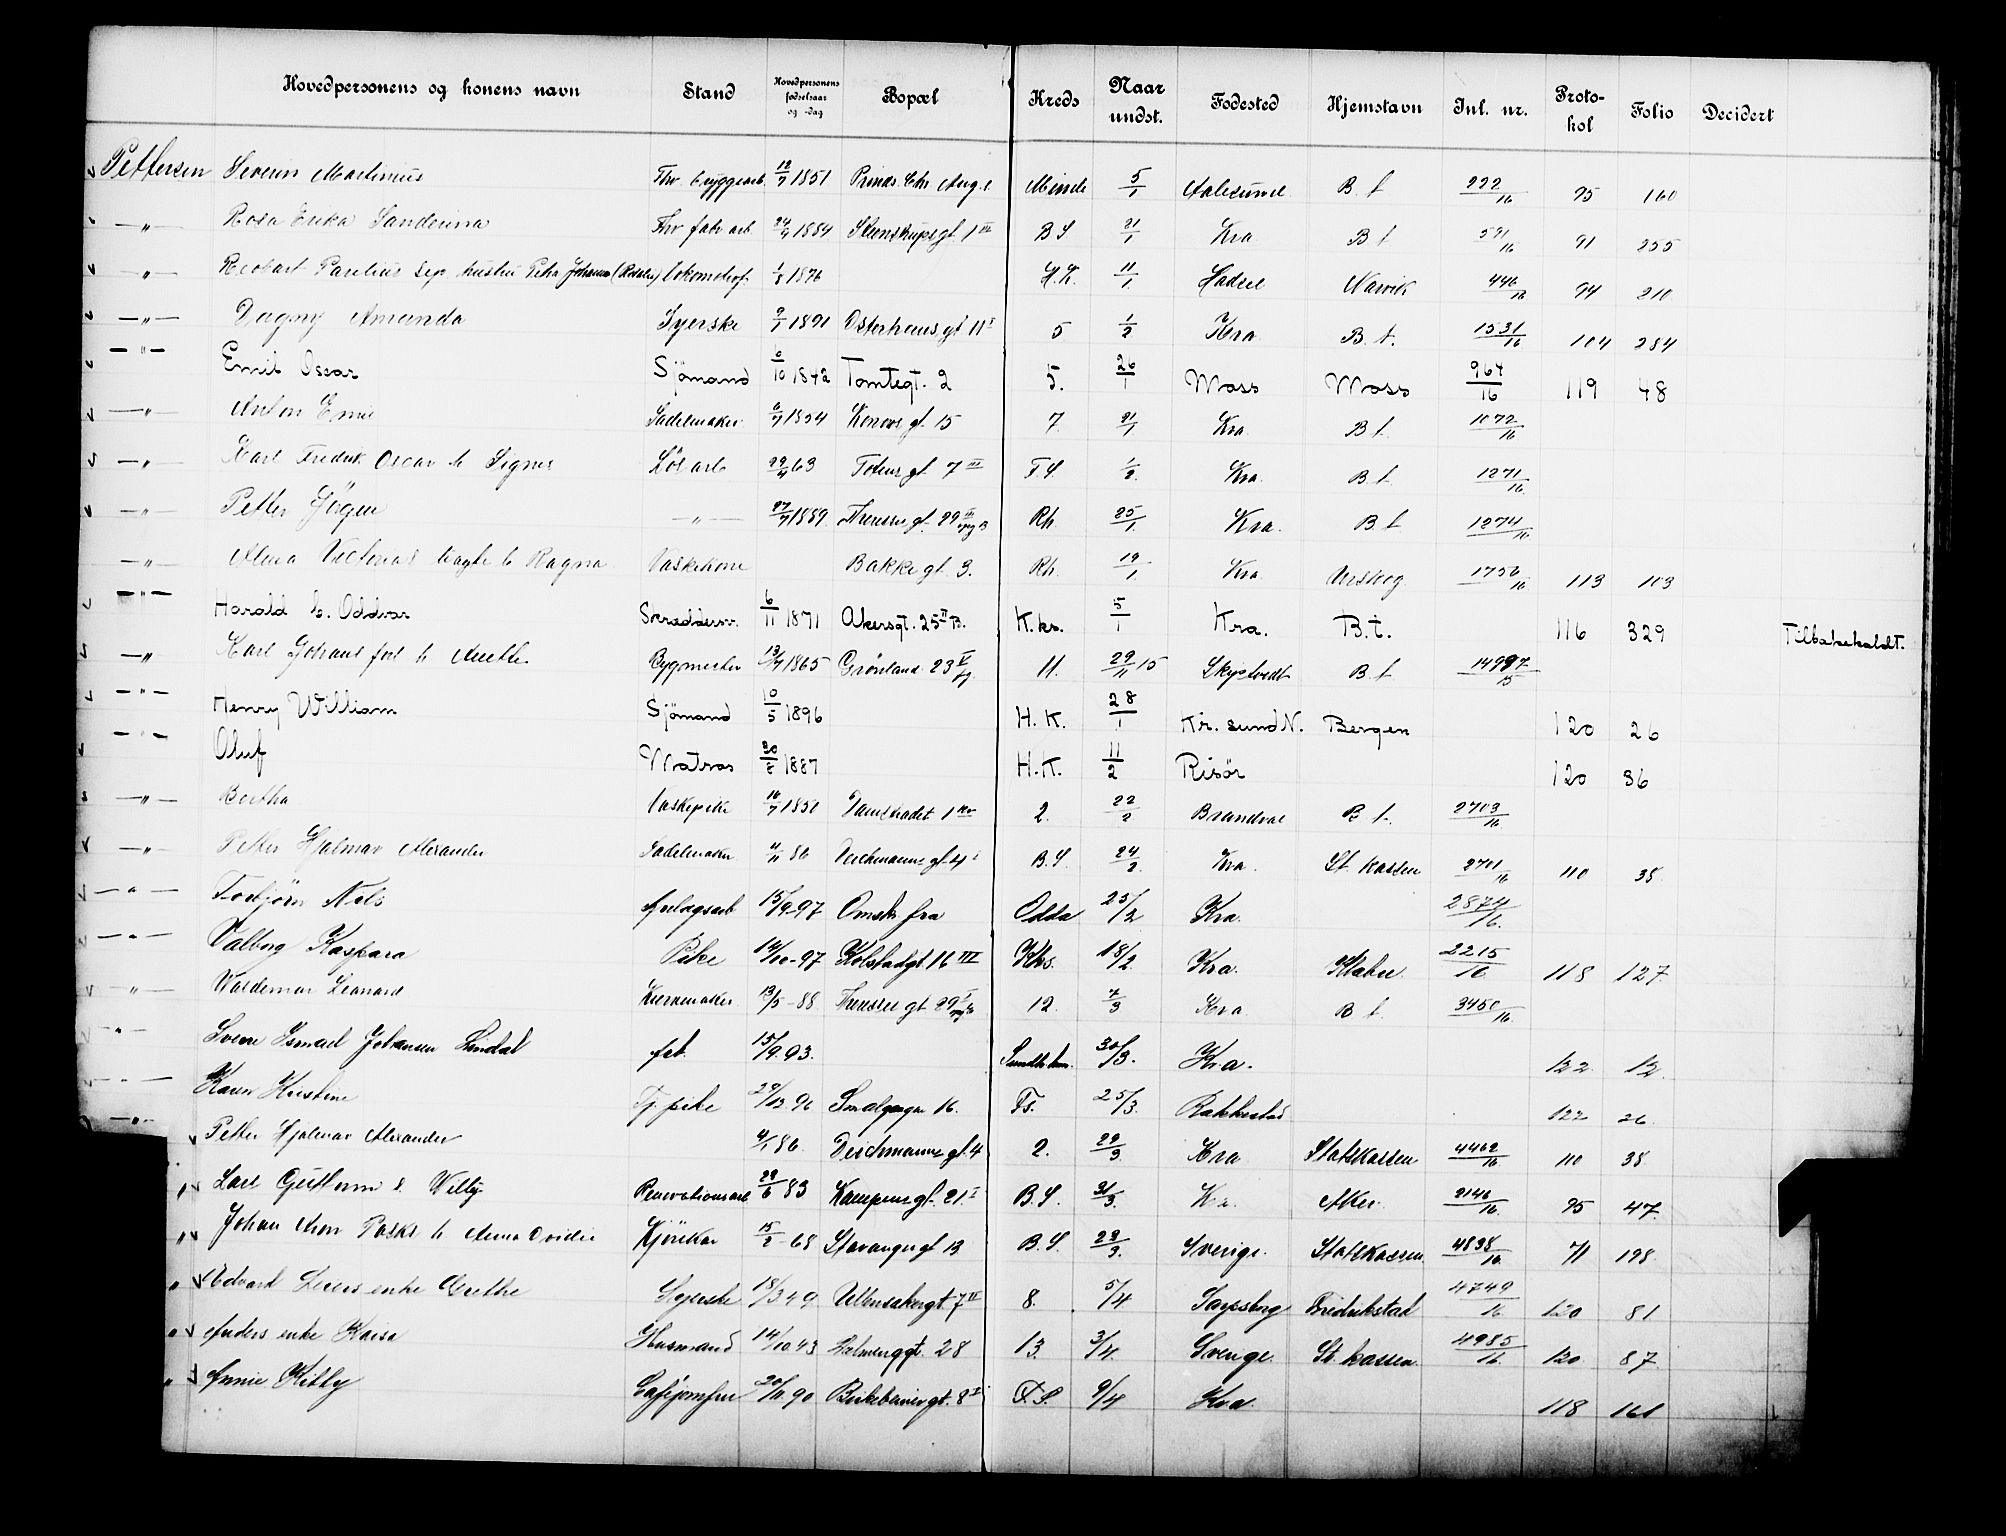 Hovedpersonens og konens navn Stand Hovedpersonens fødselsaar og -dag Bopæl Kreds Naar undst. Fødested Hjemstavn Inl. nr. Protokol Folio Decidert
Pettersen Severin Martinius Fhv. bryggearb. 12/7 1851 Prinds Chr Aug. Minde 5/1 Aalesund B. t 222/16 95 160
—"— Rosa Erika Sanderina Fhv fabr arb. 24/9 1884 Steenstrupsgt. 1 III BS 21/1 Kra B t 571/16 91 255
—"— Reobart Parelius sep. hustru Petra Johanna Lokomotivf. 1/8 1876 H.K. 11/1 Hadsel Narvik 446/16 94 210
—"— Dagny Amanda Syerske 9/1 1891 Osterhausgt 11 I 5 1/2 Kra B t. 1531/16 104 284
—"— Emil Oscar Sjömand 6/10 1872 Tomtegt. 2 5. 26/1 Moss Moss 964/16 119 48
—"— Anton Emil Sadelmaker 6/7 1854 Konows gt. 15 7 21/1 Kra B t. 1072/16
—"— Karl Fredrik Oscar Signe Lös arb 29/4 63 Totens gt. 7 III T.S. 1/2. Kra. B t. 1271/16
—"— Petter Jörgen —"— 27/7 1889. Therese gt. 29 III Rh. 25/1 Kra. B t 1274/16
—"— Alma Victorias Ragna Vaskekone Bakke gt. 3. Rh. 19/1 Kra Urskog 1756/16 113 103
—"— Harald b. Oddvar Skræddersv. 6/11 1871 Akersgt. 25 II B. K.ks. 5/1 Kra. B.t. 116 329 Tilbakekaldt.
—"— Karl Johans Anette Bygmester 13/7 1865 Grönland 23 V 11. 29/11 15 Skiptvedt B t 14997/15
—"— Henry William Sjömand 10/5 1896 H. K. 28/1 Kr. sund N. Bergen 120 26
—"— Oluf Matros 30/8 1887 H.K. 11/2 Risör 120 36
—"— Bertha Vaskepike 16/7 1851 Damstradet 1 2. 22/2 Brandval B t. 2703/16
—"— Petter Hjalmar Alexander Sadelmaker 4/11 86 Deichmanns gt. 4 I B.S. 24/2. Kra. St. kassen 2701/16 110 38
—"— Torbjörn Nels 15/9-97 Omstr. fra Odda 25/2 Kra. 2874/16.
—"— Valborg Kaspara Pike 14/10-97 Kolstadgt. 16 III Khs. 18/2. Kra. Klæbu 2215/16 118 127
—"— Valdemar Leonard Kurvmaker 13/5-88 Therese gt. 29 I 12. 7/3 Kra B t. 3450/16.
—"— Sverre Ismael Johansen Lindal fab. 15/9.93. Sundh. kom. 30/3. Kra. 122 12
—"— Karen Kristine Tj. pike 29/12.96 Smalgangen 16. Ts. 25/3. Rakkestad 122 26
—"— Petter Hjalmar Alexander 4/11 86. Deichmanns gt. 4 2. 29/3 Kra Statskassen 4462/16 110 38
" Carl Guttorm s. Willy Renovationsarb 29/6 83 Kampens gt. 21 I B.S. 31/3. Kra. Aker 2146/16. 95 47
" Johan Aron Paske b Anna Ovidie Kjörekar 15/2-68 Stavanger gt 13 B.S. 29/3. Sverige. Statskassen 4838/16. 71 198
" Edvard Livers enke Grethe Syerske 18/3 49 Ullensakergt. 7 II 8. 5/4 Sarpsborg Fredrikstad 4749/16 120 81
" Anders enke Kaisa Husmand 14/10.43 Helmersgt. 28 13. 3/4. Sverige. St. kassen 4985/16 120 87
" Annie Kitty Cafejomfru 20/11.90 Birkebeinergt. 8 I T.S. 9/4 Kra. 118 161